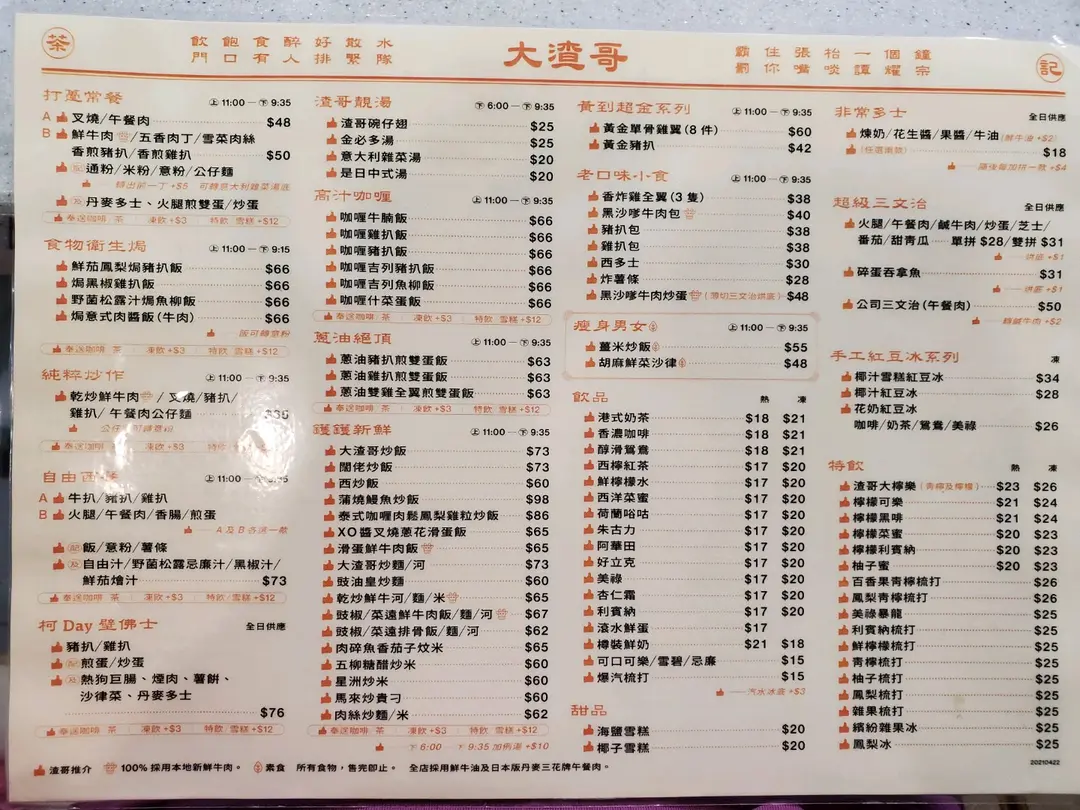 茶
飲飽食醉好散水
門口有人排緊隊
大渣哥
霸住張枱一個鐘
罰你嘴啖譚耀宗
記
打躉常餐 上 11:00 — 下 9:35
A 叉燒/午餐肉 $48
B 鮮牛肉/五香肉丁/雪菜肉絲
香煎豬扒/香煎雞扒 $50
配 通粉/米粉/意粉/公仔麵
轉出前一丁 +$5 可轉意大利雜菜湯底
及 丹麥多士、火腿煎雙蛋/炒蛋
奉送咖啡 茶 凍飲 +$3 特飲 雪糕 +$12
食物衞生焗 上 11:00 — 下 9:15
鮮茄鳳梨焗豬扒飯 $66
焗黑椒雞扒飯 $66
野菌松露汁焗魚柳飯 $66
焗意式肉醬飯(牛肉) $66
飯可轉意粉
奉送咖啡 茶 凍飲 +$3 特飲 雪糕 +$12
純粹炒作 上 11:00 — 下 9:35
乾炒鮮牛肉/叉燒/豬扒/
雞扒/午餐肉公仔麵
奉送咖啡 茶 凍飲 +$3
自由西 上 11:00
A 牛扒/豬扒/雞扒
B 火腿/午餐肉/香腸/煎蛋
A 及 B 各選一款
配 飯/意粉/薯條
及 自由汁/野菌松露忌廉汁/黑椒汁/
鮮茄燴汁 $73
奉送咖啡 茶 凍飲 +$3 特飲/雪糕 +$12
柯 Day 壁佛士 全日供應
豬扒/雞扒
配 煎蛋/炒蛋
及 熱狗巨腸、煙肉、薯餅、
沙律菜、丹麥多士
$76
奉送咖啡 茶 凍飲 +$3 特飲/雪糕 +$12
渣哥靚湯 下 6:00 — 下 9:35
渣哥碗仔翅 $25
金必多湯 $25
意大利雜菜湯 $20
是日中式湯 $20
高汁咖喱 上 11:00 — 下 9:35
咖喱牛腩飯 $66
咖喱雞扒飯 $66
咖喱豬扒飯 $66
咖喱吉列豬扒飯 $66
咖喱吉列魚柳飯 $66
咖喱什菜蛋飯 $66
奉送咖啡 茶 凍飲 +$3 特飲 雪糕 +$12
蔥油絕頂 上 11:00 — 下 9:35
蔥油豬扒煎雙蛋飯 $63
蔥油雞扒煎雙蛋飯 $63
蔥油雞全翼煎雙蛋飯 $63
奉送咖啡 茶 凍飲 +$3 特飲 雪糕 +$12
鑊鑊新鮮 上 11:00 — 下 9:35
大渣哥炒飯 $73
闊佬炒飯 $73
西炒飯 $60
蒲燒鰻魚炒飯 $98
泰式咖喱肉鬆鳳梨雞粒炒飯 $86
XO醬叉燒蔥花滑蛋飯 $65
滑蛋鮮牛肉飯 $65
大渣哥炒麵/河 $73
豉油皇炒麵 $60
乾炒鮮牛河/麵/米 $65
豉椒/菜遠鮮牛肉飯/麵/河 $67
豉椒/菜遠排骨飯/麵/河 $62
肉碎魚香茄子炆米 $65
五柳糖醋炒米 $60
星洲炒米 $60
馬來炒貴刁 $60
肉絲炒麵/米 $62
奉送咖啡 茶 凍飲 +$3 特飲 雪糕 +$12
下 6:00 下 9:35 加例湯 +$10
黃到超金系列 上 11:00 — 下 9:35
黃金單骨雞翼(8 件) $60
黃金豬扒 $42
老口味小食 上 11:00 — 下 9:35
香炸雞全翼(3 隻) $38
黑沙嗲牛肉包 $40
豬扒包 $38
雞扒包 $38
西多士 $30
炸薯條 $28
黑沙嗲牛肉炒蛋(薄切三文治烘底) $48
瘦身男女 上 11:00 — 下 9:35
薑米炒飯 $55
胡麻鮮菜沙律 $48
飲品 熱 凍
港式奶茶 $18 $21
香濃咖啡 $18 $21
醇滑鴛鴦 $18 $21
西檸紅茶 $17 $20
鮮檸檬水 $17 $20
西洋菜蜜 $17 $20
荷蘭唂咕 $17 $20
朱古力 $17 $20
阿華田 $17 $20
好立克 $17 $20
美祿 $17 $20
杏仁霜 $17 $20
利賓納 $17 $20
滾水鮮蛋 $17
樽裝鮮奶 $21 $18
可口可樂/雪碧/忌廉 $15
爆汽梳打 $15
汽水冰底 +$3
甜品
海鹽雪糕 $20
椰子雪糕 $20
非常多士 全日供應
煉奶/花生醬/果醬/牛油(鮮牛油 +$2)
(任選兩款) $18
隨後每加拼一款 +$4
超級三文治 全日供應
火腿/午餐肉/鹹牛肉/炒蛋/芝士/
番茄/甜青瓜 單拼 $28/雙拼 $31
烘底 +$1
碎蛋吞拿魚 $31
烘底 +$1
公司三文治(午餐肉) $50
轉鹹牛肉 +$2
手工紅豆冰系列 凍
椰汁雪糕紅豆冰 $34
椰汁紅豆冰 $28
花奶紅豆冰
咖啡/奶茶/鴛鴦/美祿 $26
特飲 熱 凍
渣哥大檸樂(青檸及檸檬) $23 $26
檸檬可樂 $21 $24
檸檬黑啡 $21 $24
檸檬菜蜜 $20 $23
檸檬利賓納 $20 $23
柚子蜜 $20 $23
百香果青檸梳打 $26
鳳梨青檸梳打 $26
美祿暴龍 $25
利賓納梳打 $25
鮮檸檬梳打 $25
青檸梳打 $25
柚子梳打 $25
鳳梨梳打 $25
雜果梳打 $25
繽紛雜果冰 $25
鳳梨冰 $25
20210422
渣哥推介 100% 採用本地新鮮牛肉。 素食 所有食物,售完即止。 全店採用鮮牛油及日本版丹麥三花牌午餐肉。